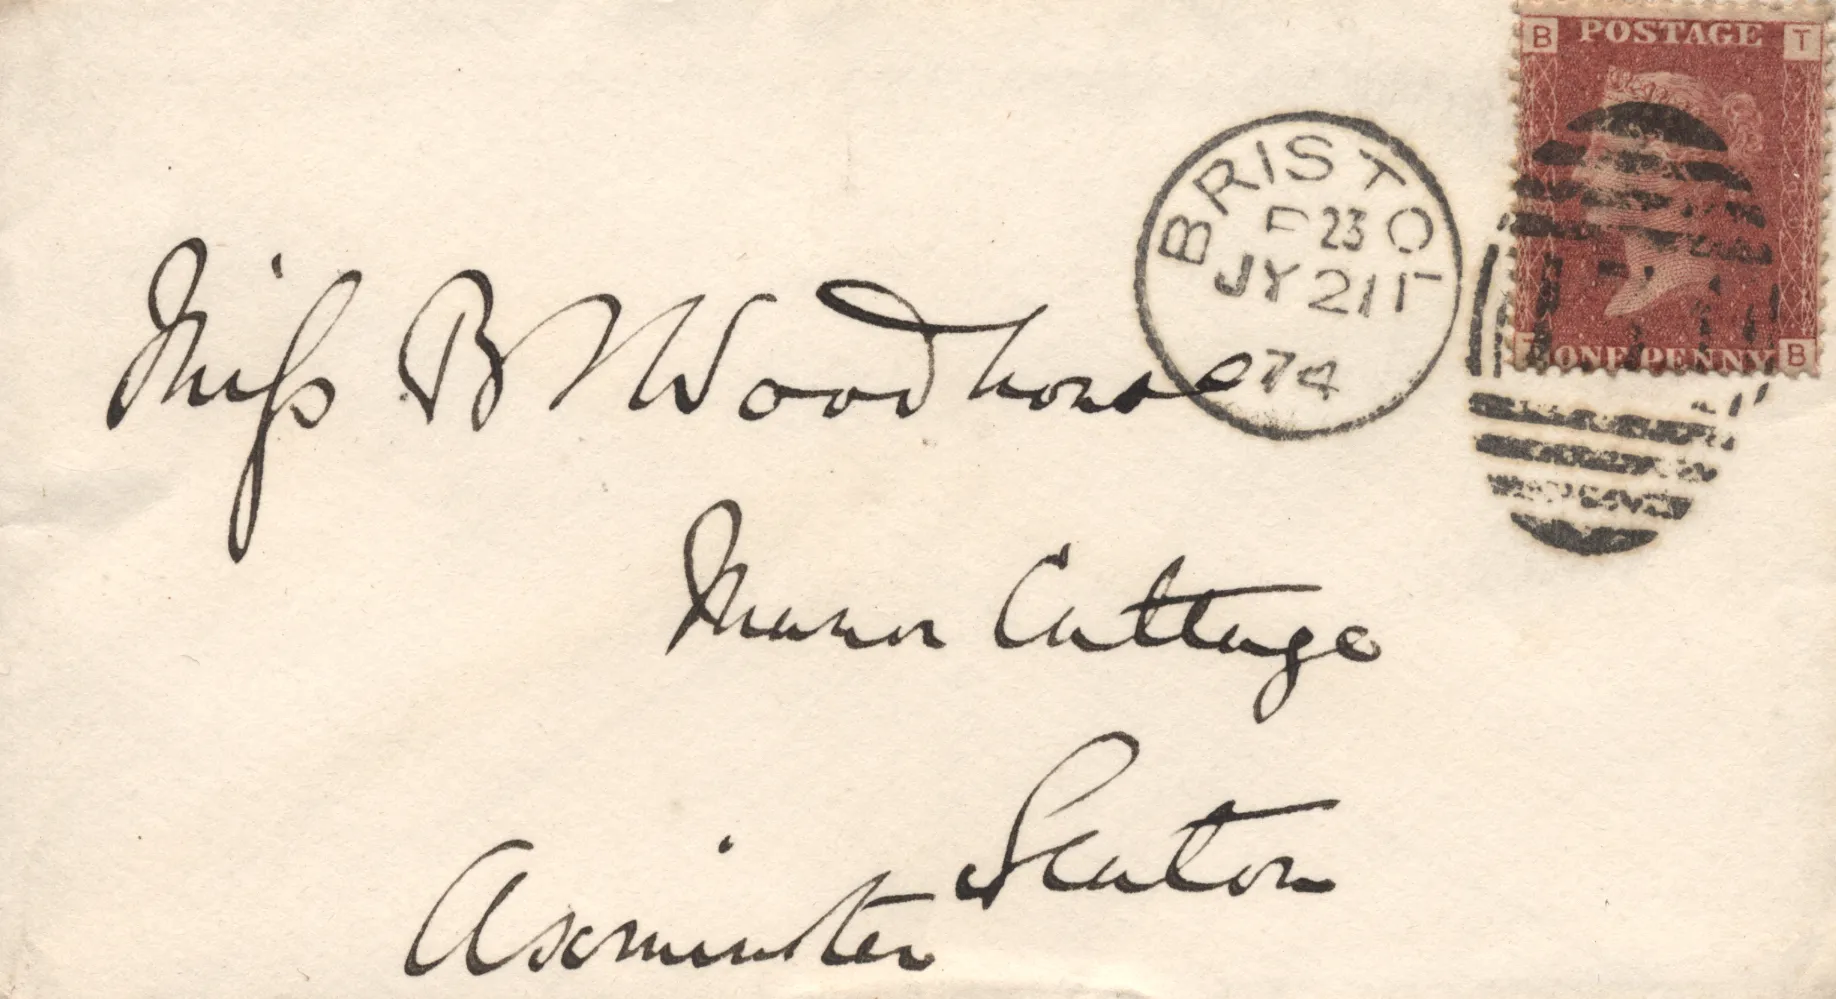 B POSTAGE T
BRISTOL
23
JY 21
74
ONE PENNY B
Miss B Woodhouse
Manor Cottage
Seaton
Axminster